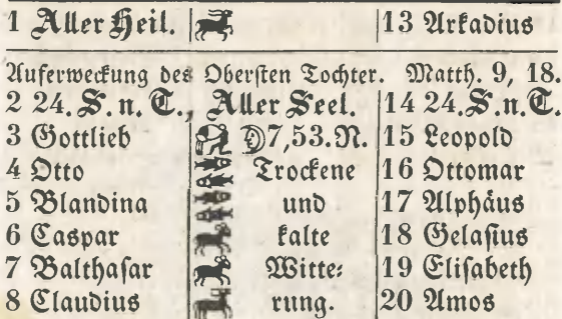 1 Aller Heil. 13 Arkadius
Auferweckung des Obersten Tochter. Matth. 9, 18.
2 24. S. n. T., Aller Seel. 14 24. S. n. T.
3 Gottlieb 7,53. N. 15 Leopold
4 Otto Trockene 16 Ottomar
5 Blandina und 17 Alphäus
6 Caspar kalte 18 Gelasius
7 Balthasar Witte⸗ 19 Elisabeth
8 Claudius rung. 20 Amos